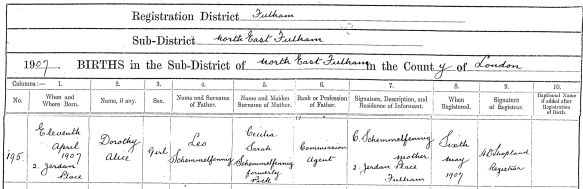 Registration District Fulham
Sub-District North East Fulham
1907. BIRTHS in the Sub-District of North East Fulham in the County of London
Columns:— 1. 2. 3. 4. 5. 6. 7. 8. 9. 10.
No. When and Where Born. Name, if any. Sex. Name and Surname of Father. Name and Maiden Surname of Mother. Rank or Profession of Father. Signature, Description, and Residence of Informant. When Registered. Signature of Registrar. Baptismal Name if added after Registration of Birth.
195. Eleventh April 1907 2. Jerdan Place Dorothy Alice Girl Leo Schemmelfennig Cecilia Sarah Schemmelfennig formerly Commission Agent C. Schemmelfennig mother 2. Jerdan Place Fulham Sixth May 1907 Registrar